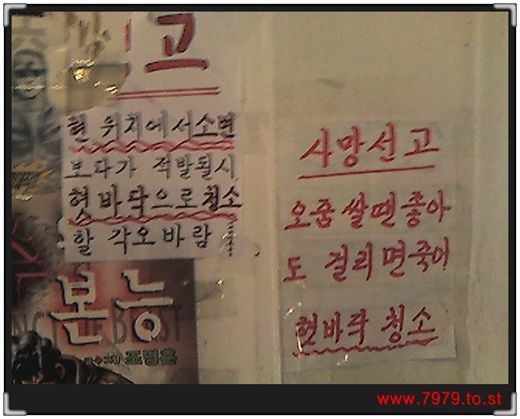 고
현 위치에서 소변
보다가 적발될시
혓바닥으로 청소
할 각오 바람
본능
사망선고
오줌 쌀땐 좋아
도 걸리면 죽어
혓바닥 청소
www.7979.to.st